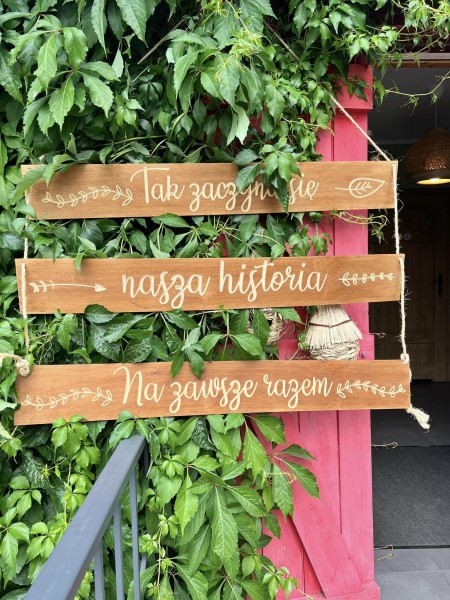 Tak zaczyna się
nasza historia
Na zawsze razem